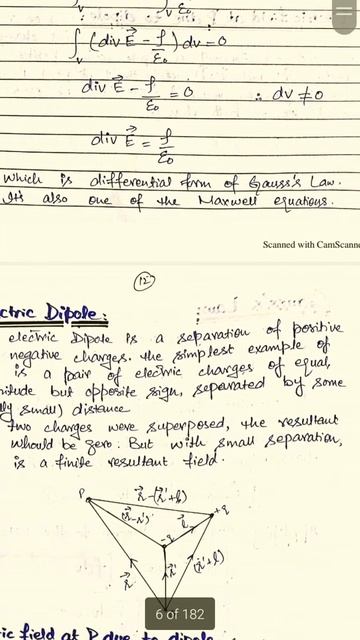 ∫v  ∫v ε₀
∫v (div E⃗ − ρ/ε₀) dv = 0
div E⃗ − ρ/ε₀ = 0  ∴ dv ≠ 0
div E⃗ = ρ/ε₀
Which is differential form of Gauss's Law.
It's also one of the Maxwell equations.
Scanned with CamScanne
12
ctric Dipole:
electric Dipole is a separation of positive
negative charges. The simplest example of
is a pair of electric charges of equal,
nitude but opposite sign, separated by some
lly small) distance
two charges were superposed, the resultant
whould be zero. But with small separation,
is a finite resultant field.
P r⃗-(r⃗'+l) +q
(r⃗-r⃗') l⃗
-q
r⃗ r⃗' (r⃗'+l)
6 of 182
ric field at P due to dipole